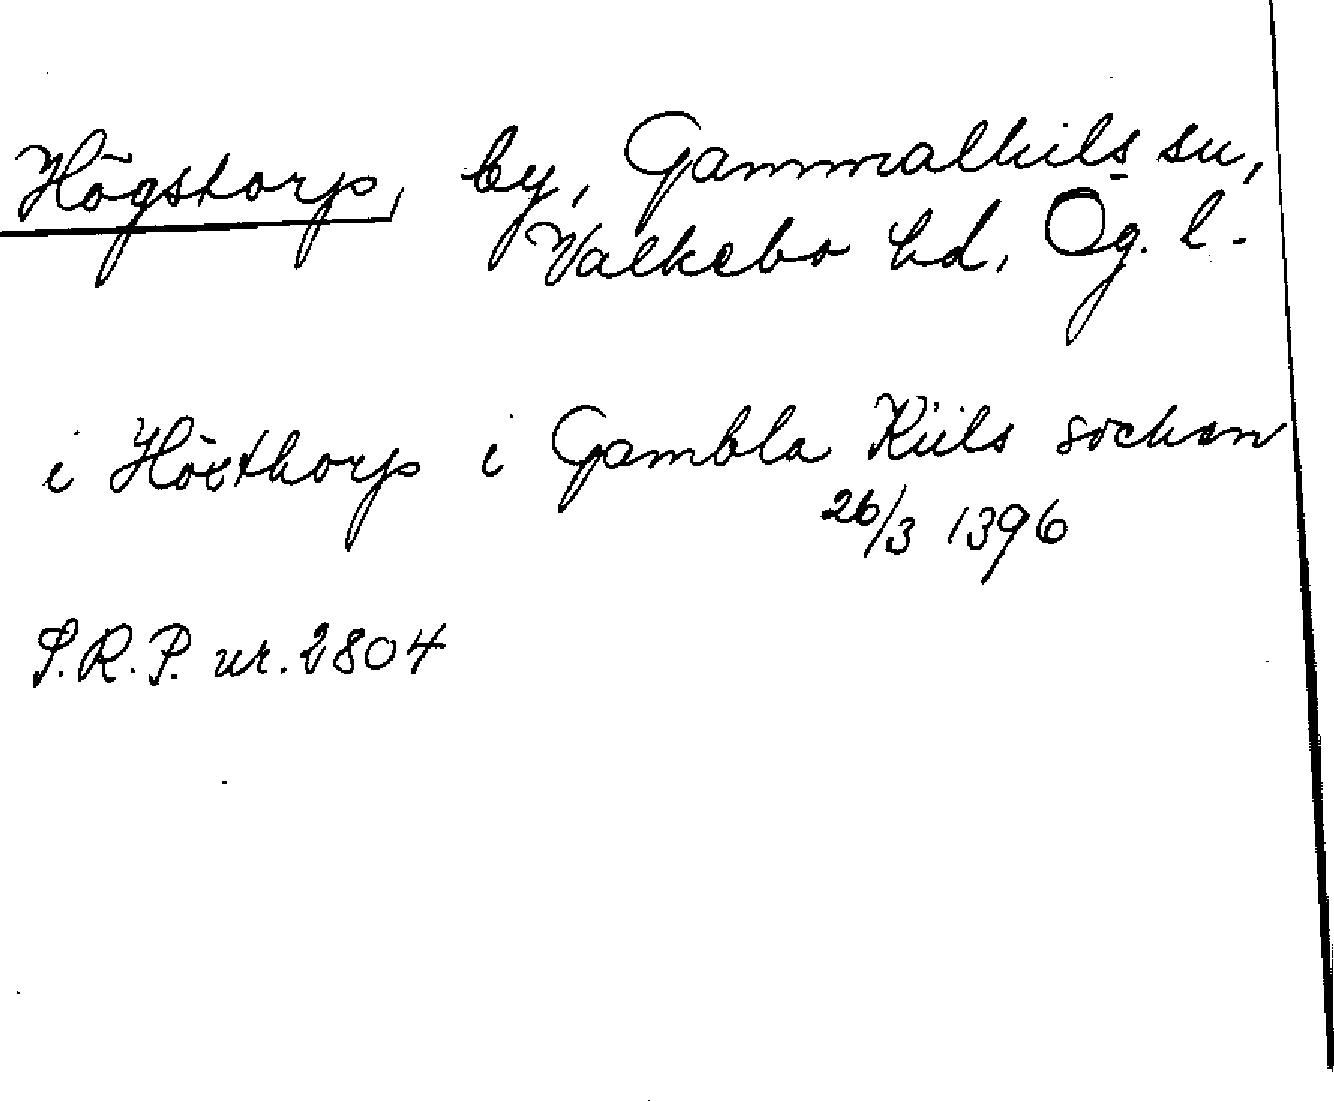 Högstorp, by, Gammalkils sn,
Valkebo hd, Ög. l.
i Höxthorp i Gambla Kiils sochan
26/3 1396
S.R.P. nr. 2804